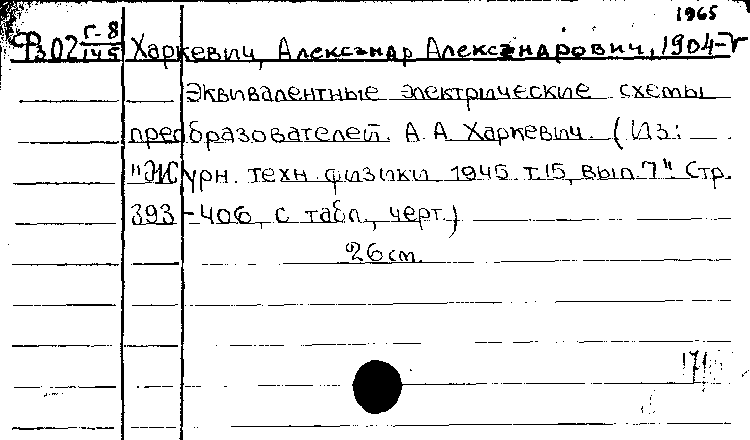 1965
Ф302 Г-8/145 Харкевич, Александр Александрович, 1904-
Эквивалентные электрические схемы
преобразователей. А. А. Харкевич. (Из:
"Журн. техн. физики 1945. т.15, вып. 7". Стр.
393-406, с табл., черт.)
26 см.